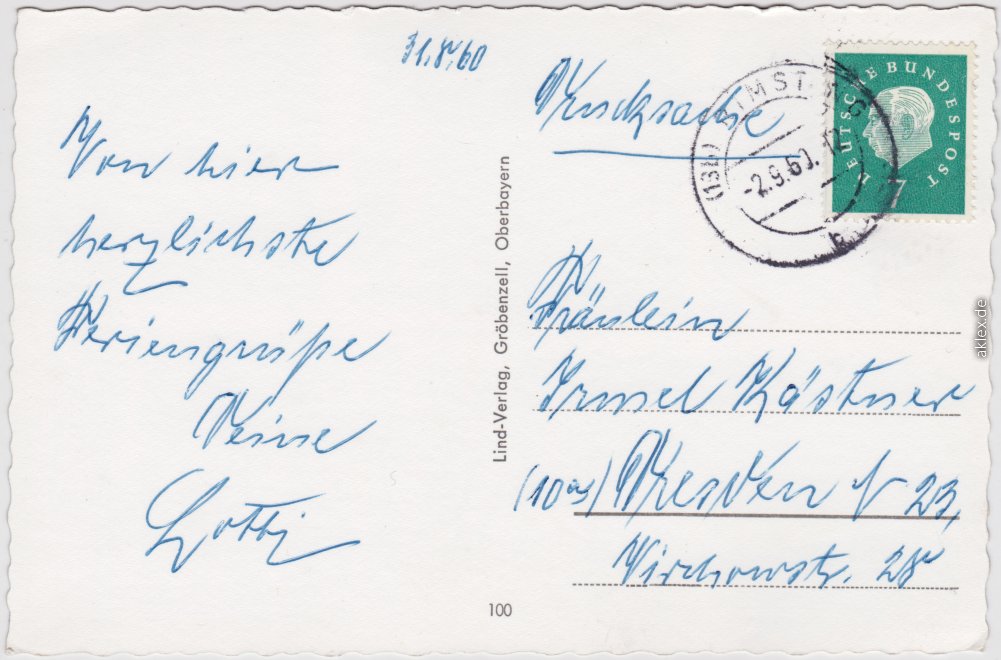 31.8.60
Von hier
herzlichste
Feriengrüße
Deine
Lotti
Lind-Verlag, Gröbenzell, Oberbayern
100
Drucksache
(13b)
-2.9.60.12
DEUTSCHE BUNDESPOST
7
Fräulein
Irmsel Kästner
(10a) Dresden N 23,
Virchowstr. 28
aklex.de